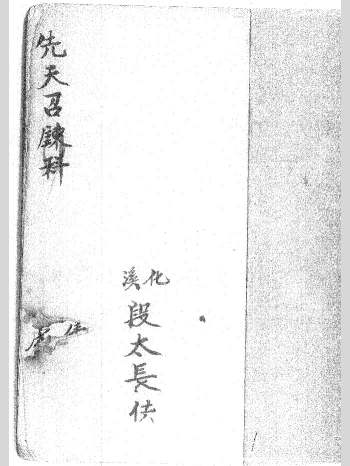 先天召鍊科
化溪
段太長